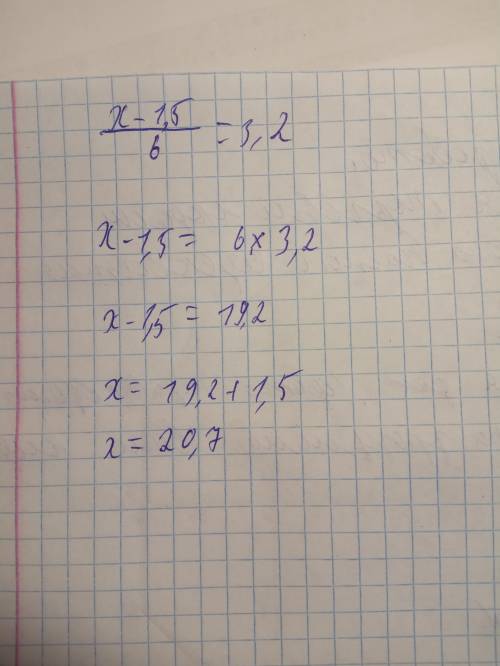 x - 1,5
6
= 3,2
x - 1,5 = 6 x 3,2
x - 1,5 = 19,2
x = 19,2 + 1,5
x = 20,7